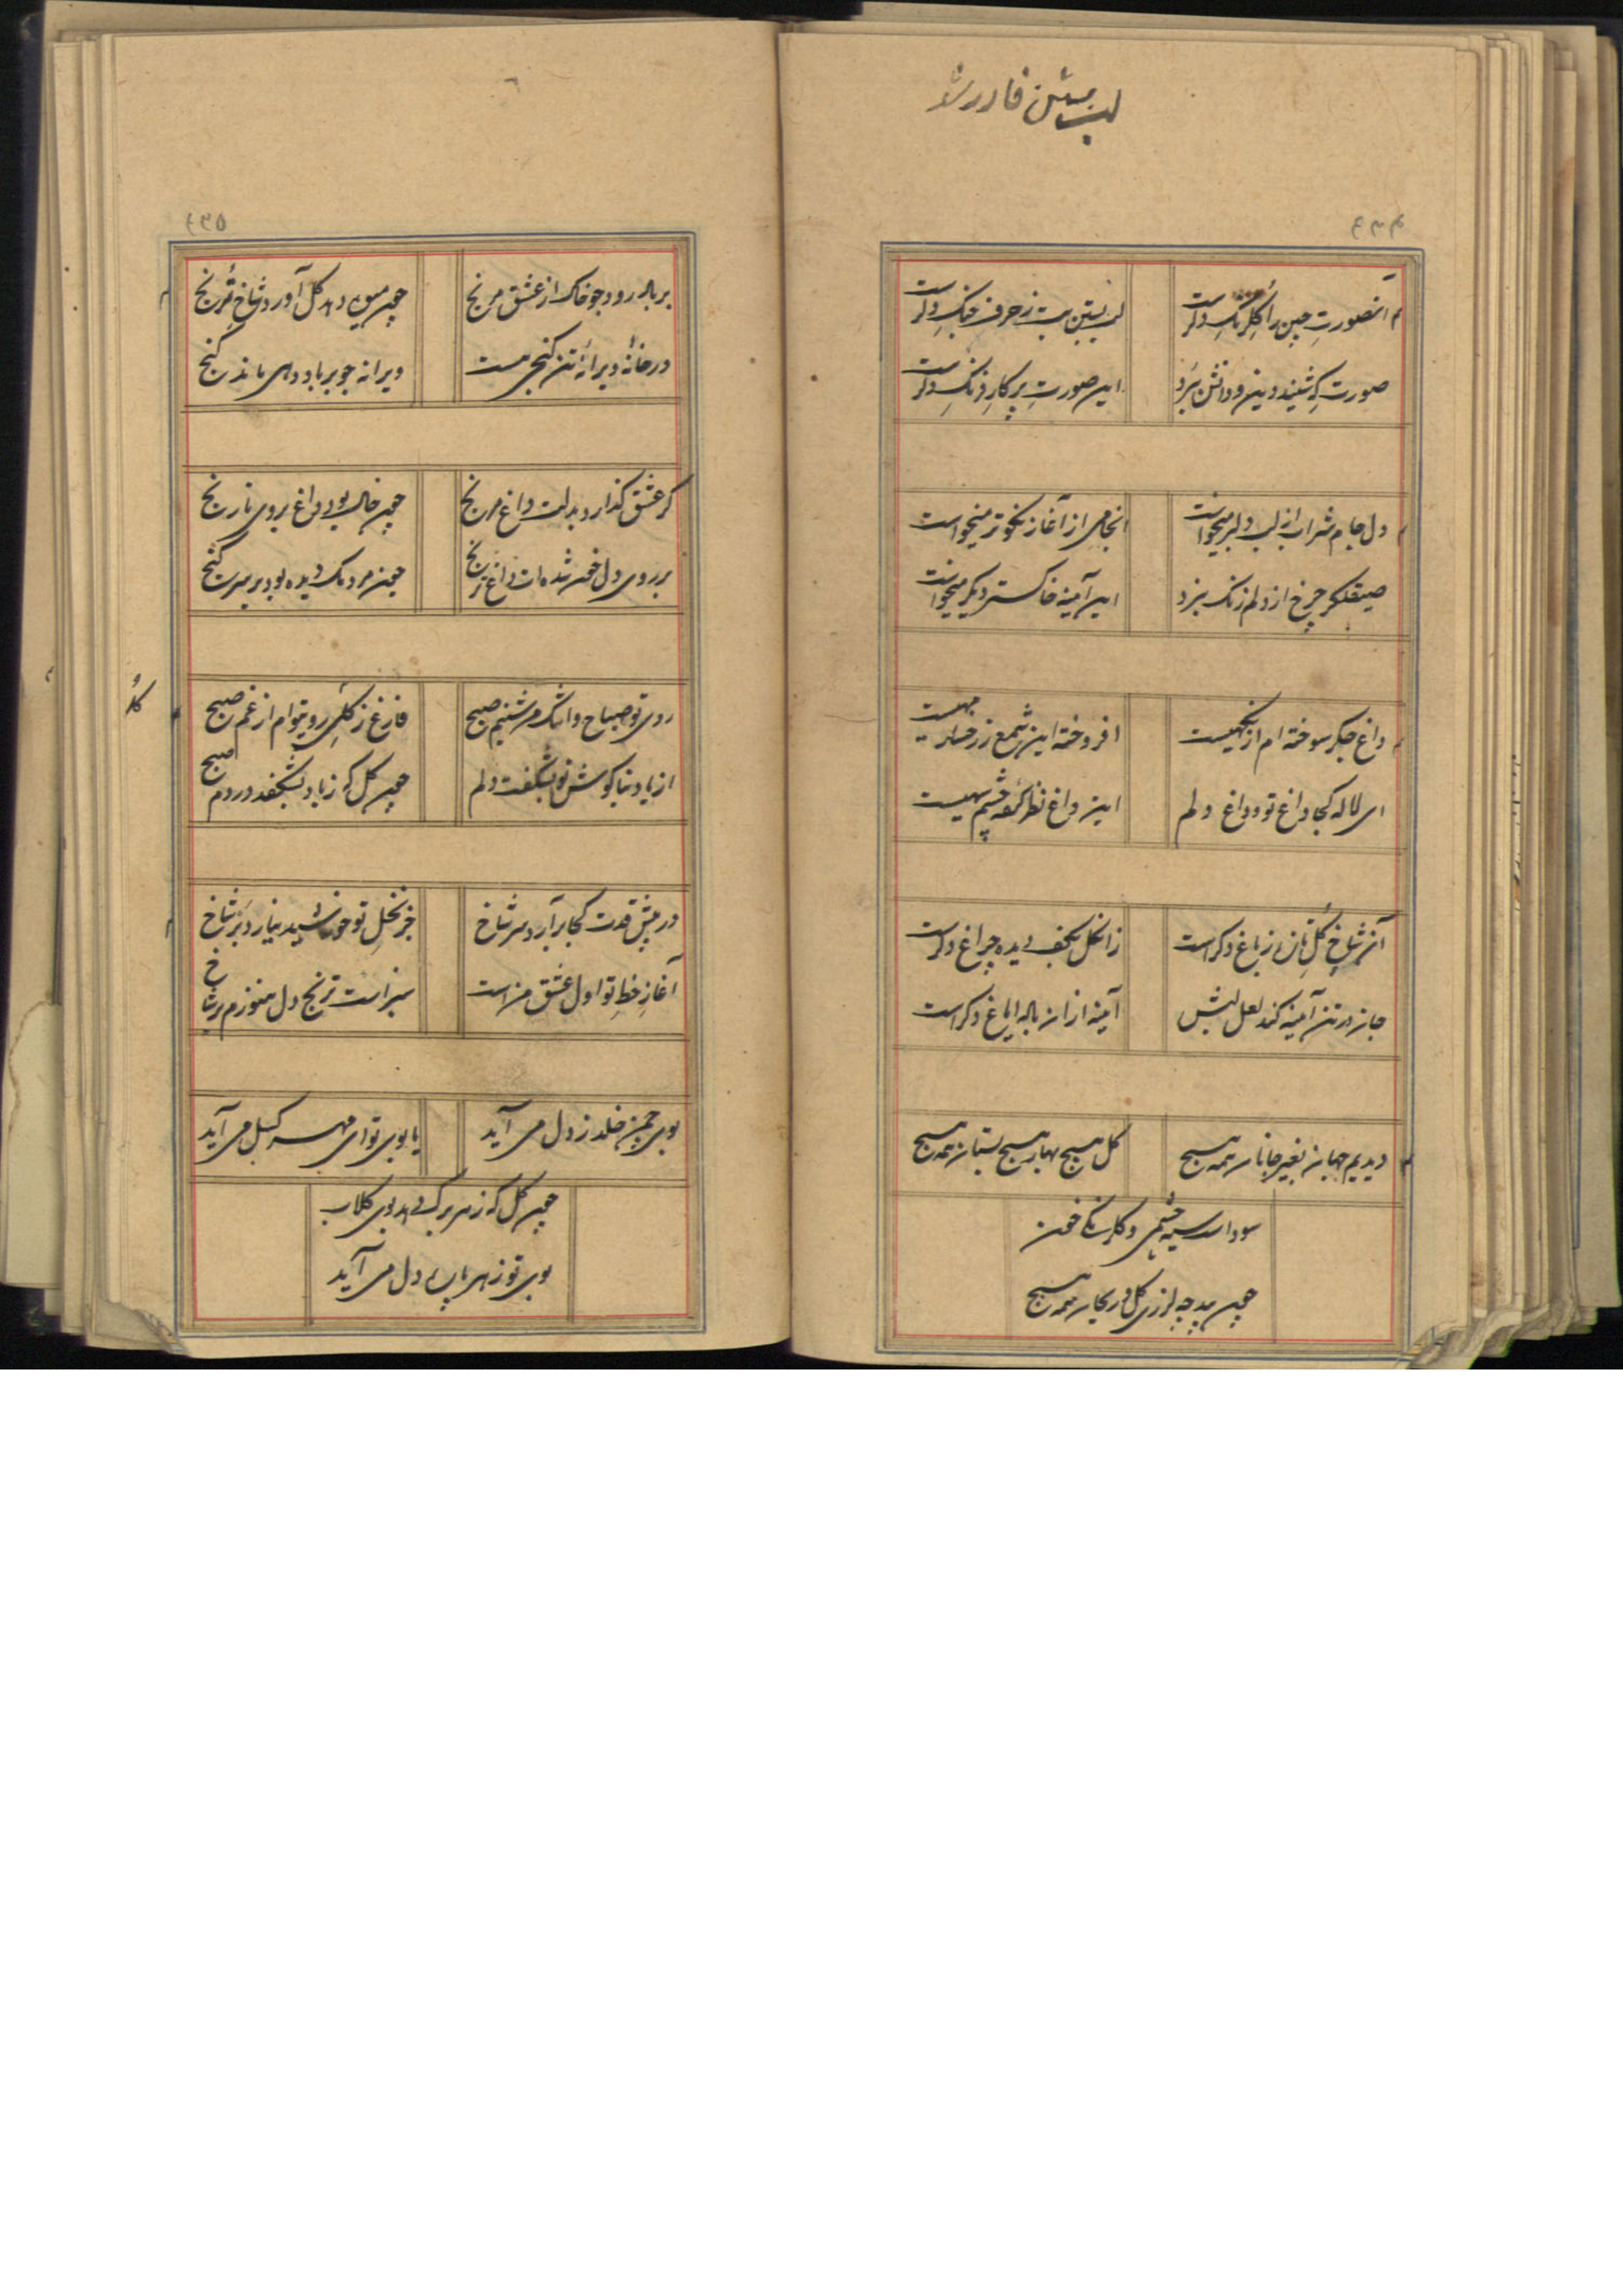 ۴۳۴
آنصورت چین را گل رنگ دگر است
لب بستن بت ز حرف جنگ دگر است
صورت که شنید دین و دانش ببرد
این صورت پرکار فرنگ دگر است
دل جام شراب از لب دلبر میخواست
انجامی از آغاز نکوتر میخواست
صیقلگر چرخ از دلم زنگ نبرد
این آینه خاکستر دیگر میخواست
داغ جگر سوخته ام از نگهیست
افروخته این شمع ز رخسار مهیست
ای لاله کجا داغ تو و داغ دلم
این داغ نظر کرده چشم سیهیست
آن شاخ گل تازه ز باغ دگر است
زان گل بکف دیده چراغ دگر است
جان در تن آینه کند لعل لبش
آینه ازان باله ایاغ دگر است
دیدیم جهان بغیر جانان همه هیچ
گل هیچ بهار هیچ بستان همه هیچ
سودای سیه چشمی و گلرنگی خون
چون بید چه لرزی گل و ریحان همه هیچ
۴۳۵
بر باد رود چو خاک از عشق مرنج
چون میوه دهد گل آورد شاخ ترنج
در خانه ویرانه تن گنجی هست
ویرانه چو بر باد دهی ماند گنج
گر عشق گذارد بدلت داغ مرنج
چون خال بود داغ بروی نارنج
بر روی دل خون شده ات داغ ترنج
چون مردمک دیده بود بر سر گنج
روی تو صباح و اشک من شبنم صبح
فارغ ز گل روی توام از غم صبح
از یاد بناگوش تو بشکفت دلم
چون گل که ز باد بشکفد در دم صبح
در پیش قدت کجا برآرد سر شاخ
جز نخل تو خورشید نیارد بر شاخ
آغاز خط تو اول عشق من است
سبز است ترنج دل هنوزم بر شاخ
بوی چمن خلد ز دل می آید
یا بوی تو ای مهر گسل می آید
چون گل که ز هر برگ دهد بوی گلاب
بوی تو ز هر پاره دل می آید